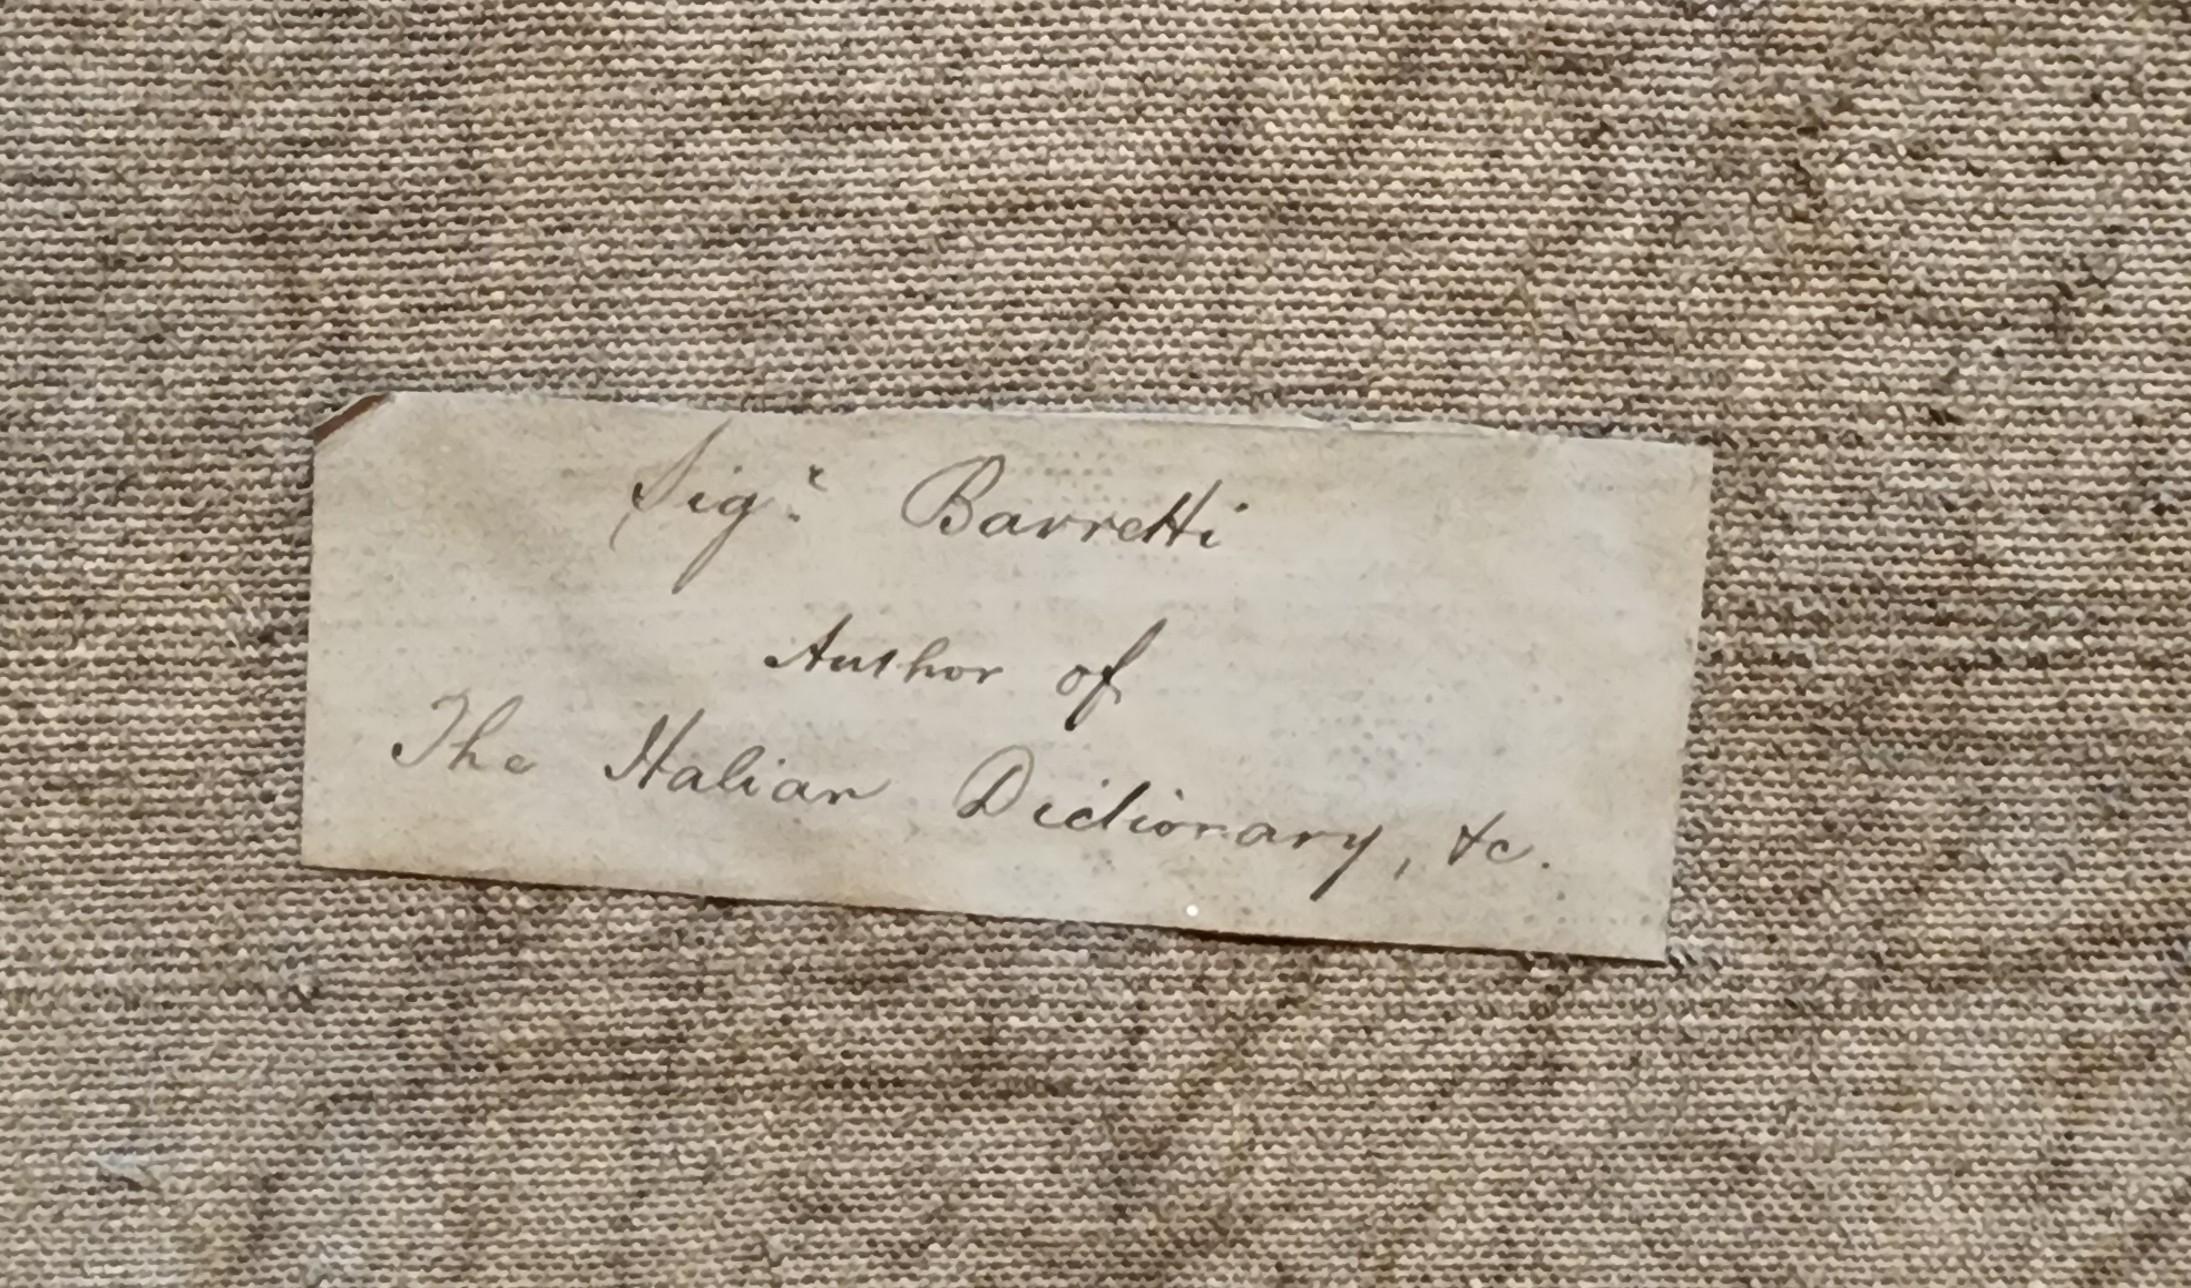 Sigr. Barretti
Author of
The Italian Dictionary, &c.